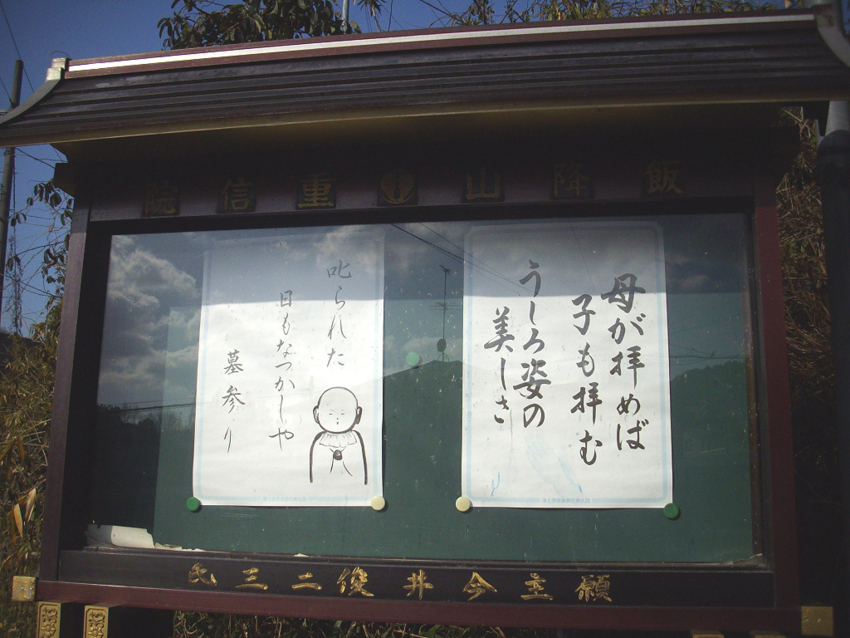 飯降山 重信院
母が拝めば
子も拝む
うしろ姿の
美しさ
叱られた
日もなつかしや
墓参り
願主今井俊二三氏